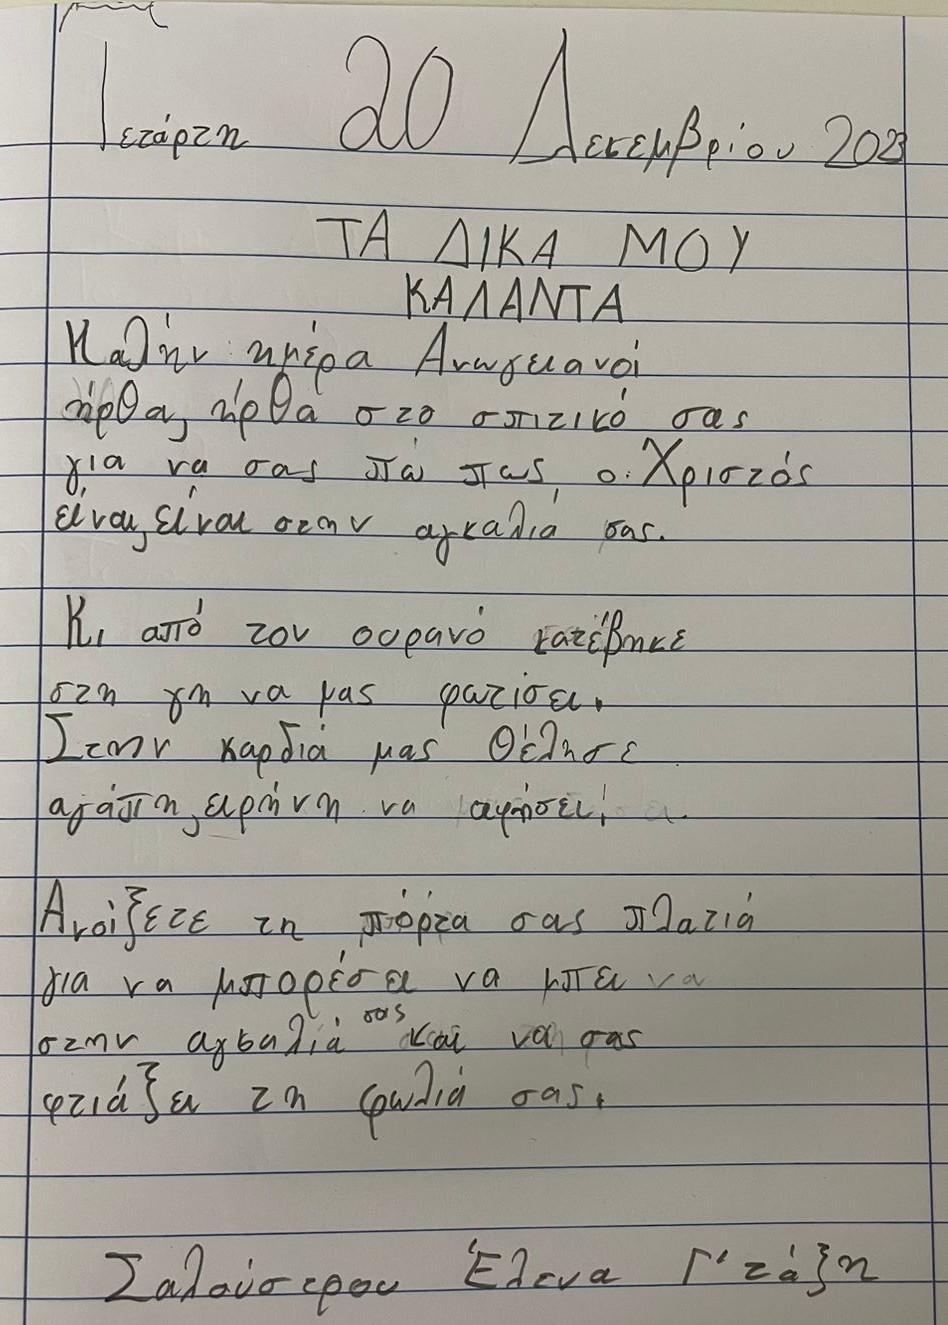 Τετάρτη 20 Δεκεμβρίου 2023
ΤΑ ΔΙΚΑ ΜΟΥ
ΚΑΛΑΝΤΑ
Καλήν ημέρα Ανωγειανοί
ήρθα, ήρθα στο σπιτικό σας
για να σας πω πως, ο Χριστός
είναι, είναι στην αγκαλιά σας.
Κι από τον ουρανό κατέβηκε
στη γη να μας φωτίσει.
Στην καρδιά μας θέλησε
αγάπη, ειρήνη να αφήσει!
Ανοίξετε τη πόρτα σας πλατιά
για να μπορέσει να μπει να
στην αγκαλιά σας και να σας
φτιάξει τη φωλιά σας.
Σαλούστρου Έλενα Γ' τάξη